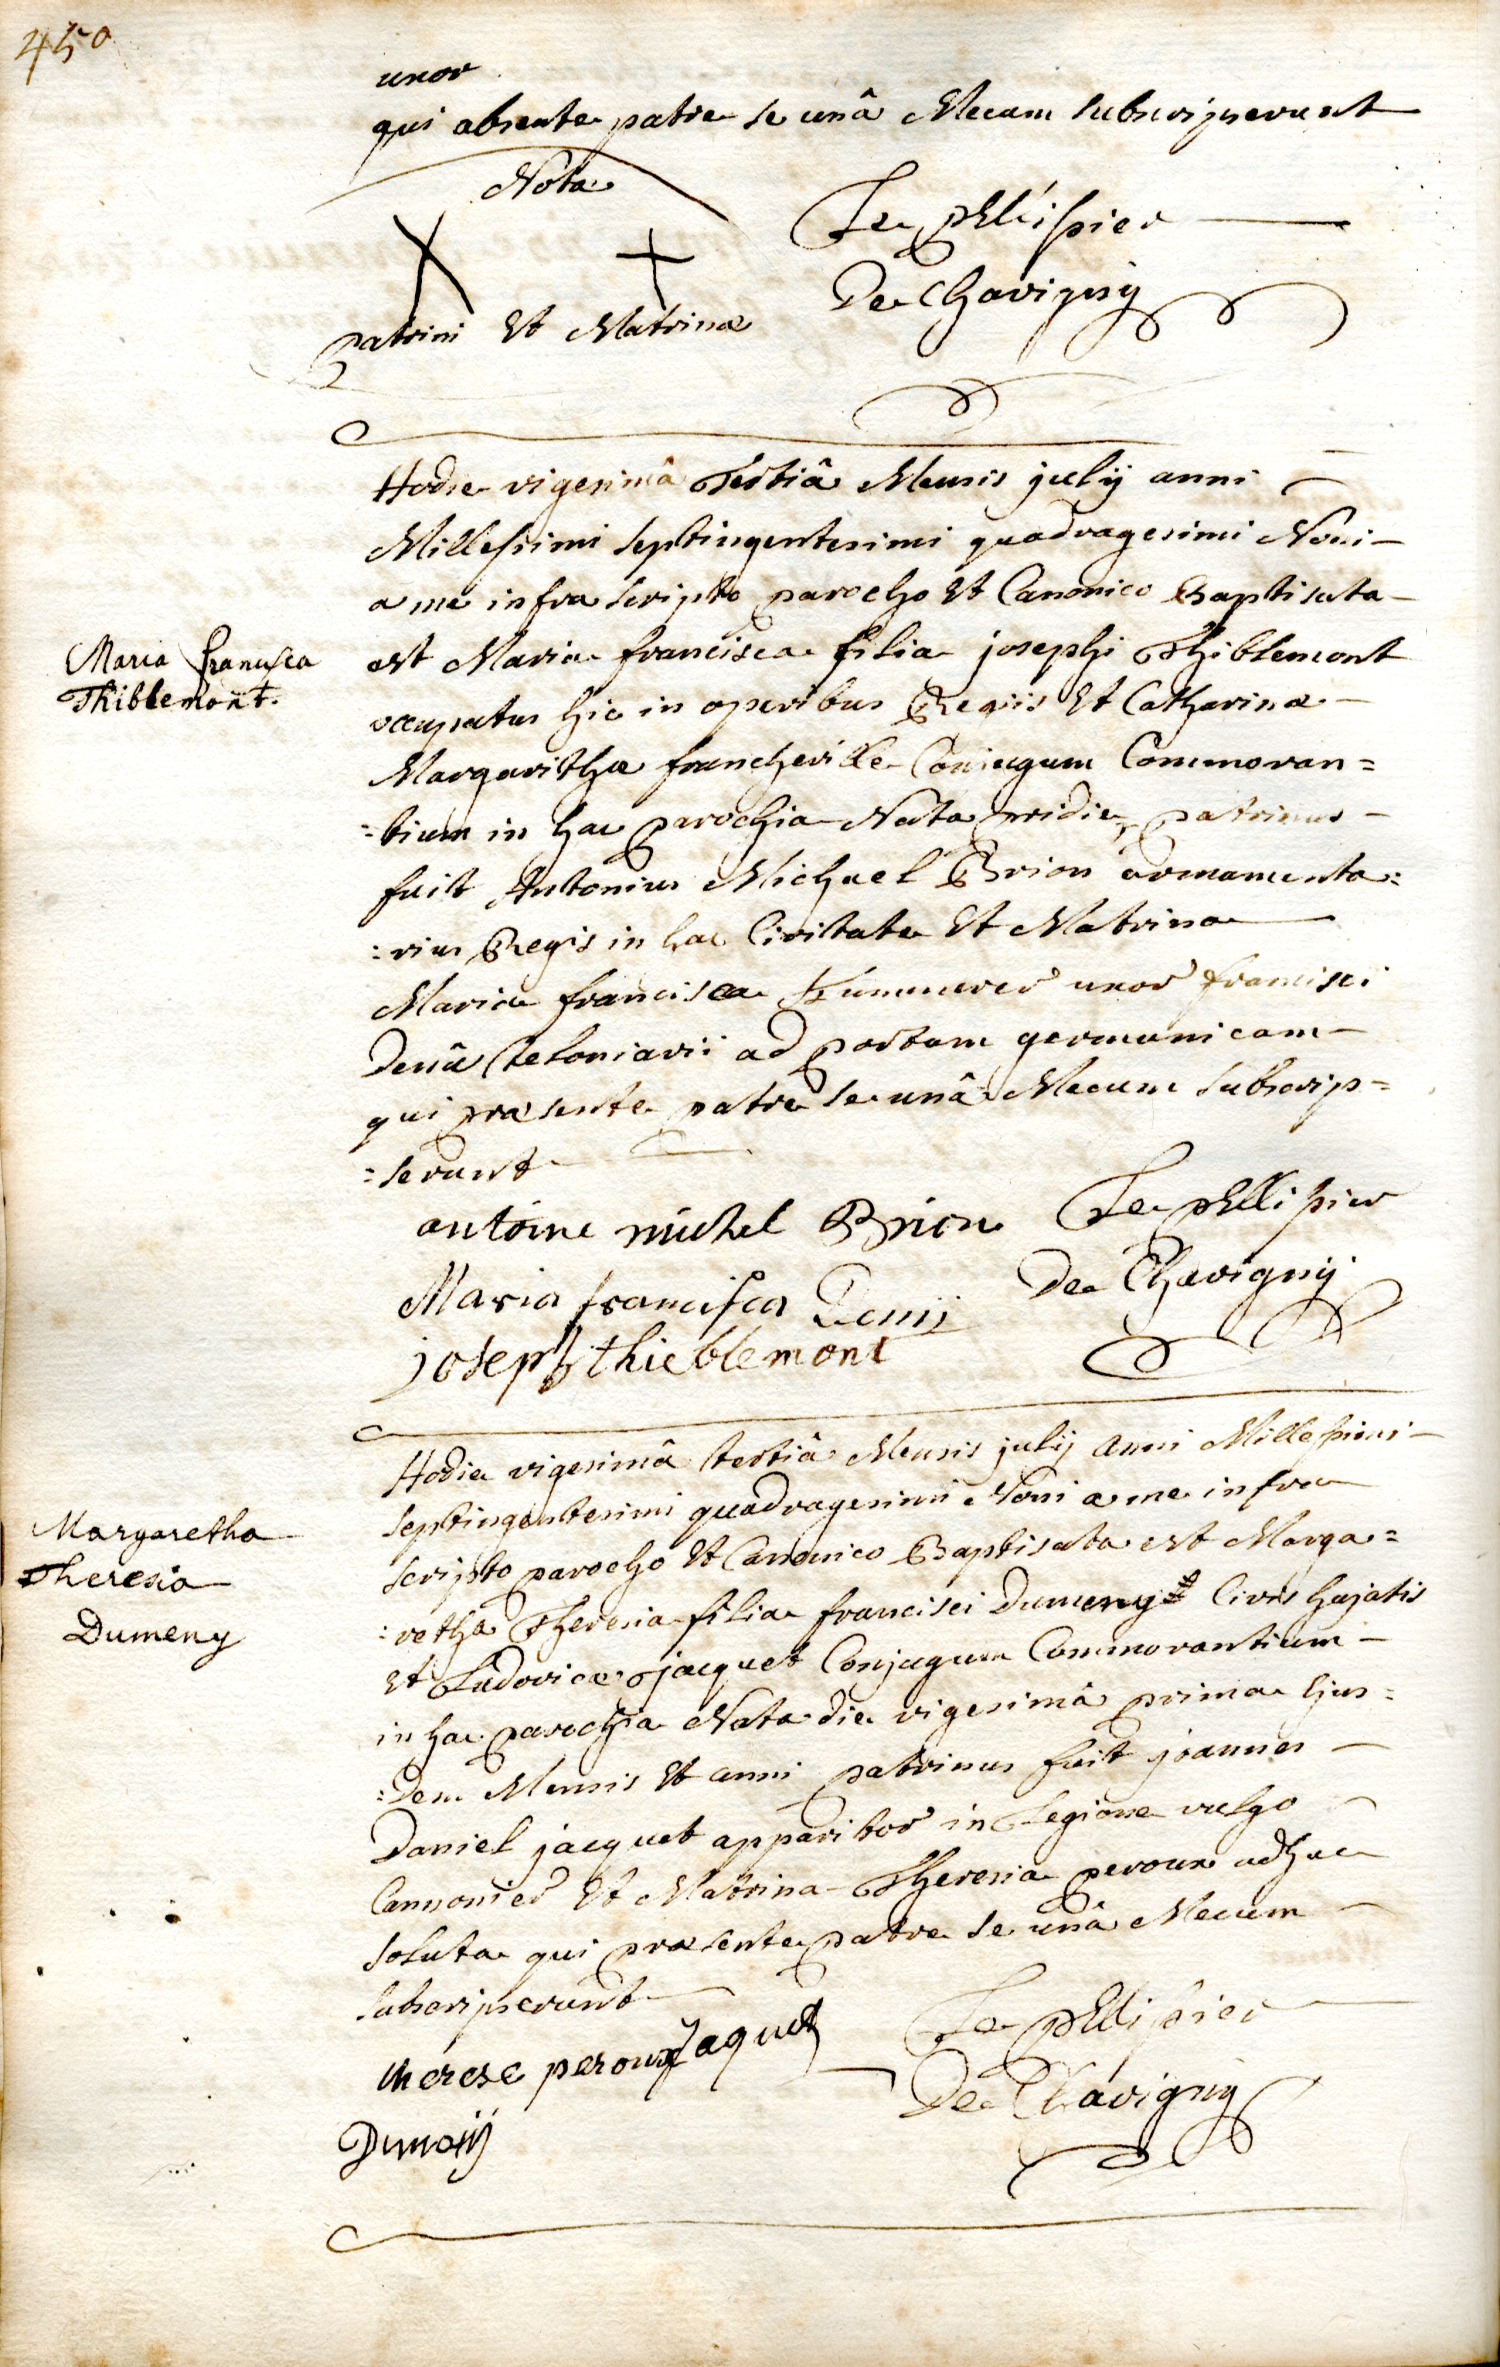 450
uxor
qui absente patre se unâ Mecum subscripserunt
Nota
patrini Et Matrinæ
Le pellissier
De Chavigny
Hodie vigesimâ Tertiâ Mensis julij anni
Millessimi septingentesimi quadragesimi Noni
a me infra scripto parocho Et Canonico Baptisata
Maria francisca
Thiblemont.
est Maria francisca filia josephi Thiblemont
occupatus hic in operibus Regiis Et Catharinæ
Margarithæ francheville Conjugum Commoran=
=tium in hac parochia Nata pridie, patrinus
fuit Antonius Michael Brion armamenta=
=rius Regis in hac Civitate Et Matrina
Maria francisca Kummerer uxor francisci
Denii teloniarii ad portam germanicam
qui præsente patre se unâ Mecum subscrip=
=serunt
antoine michel Brion
Le pellissier
De Chavigny
Maria francisca Denij
joseph thieblemont
Hodie vigesimâ tertiâ Mensis julij anni Millessimi
septingentesimi quadragesimi Noni a me infra
scripto parocho Et Canonico Baptisata est Marga=
Margaretha
Theresia
Dumeny
=retha Theresia filia francisci Dumeny Civis hujatis
Et Ludovicæ jacquet Conjugum Commorantium
in hac parochia Nata die vigesimâ prima Ejus=
=dem Mensis Et anni patrinus fuit joannes
Daniel jacquet apparitor in Legione vulgo
Cannonier Et Matrina Theresia peroux adhuc
soluta qui præsente patre se unâ Mecum
subscripserunt
therese peroux Jaquet
Le pellissier
De Chavigny